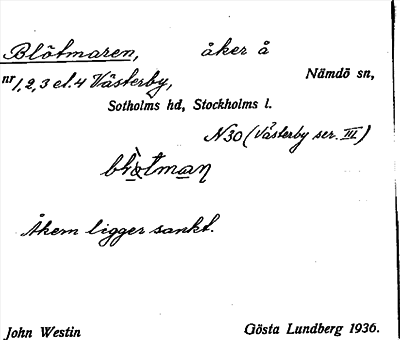 Blötmaren, åker å
nr 1, 2, 3 el. 4 Västerby, Nämdö sn,
Sotholms hd, Stockholms l.
N30 (Västerby ser. III)
Åkern ligger sankt.
John Westin Gösta Lundberg 1936.